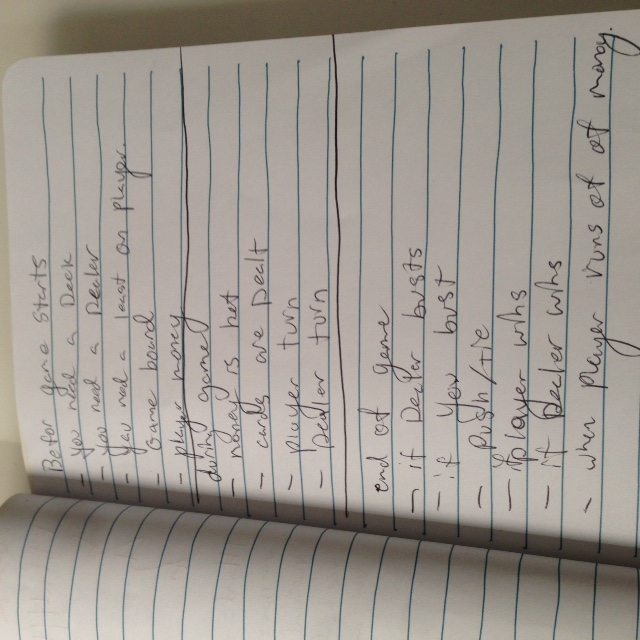 Befor game starts
- you need a Deck
- you need a Dealer
- you need a least on player.
- Game board
- player money
during game
- money is bet
- cards are Dealt
- player turn
- Dealer turn
end of game
- if Dealer busts
- if you bust
- Push/tie
- if player wins
- if Dealer wins
- when player runs of of money.